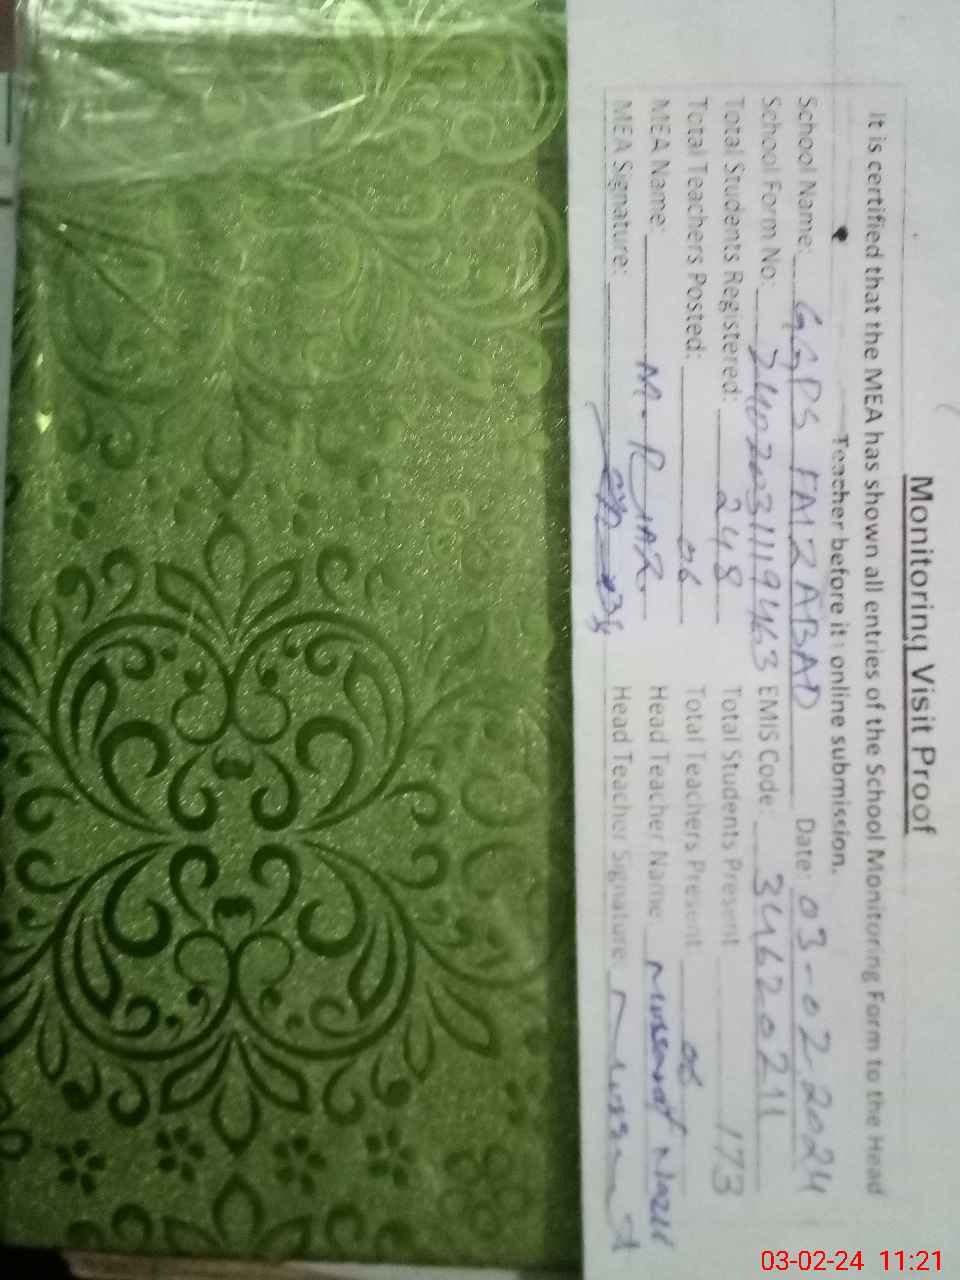 Monitoring Visit Proof
It is certified that the MEA has shown all entries of the School Monitoring Form to the Head
Teacher before it's online submission.
School Name: GGPS FAIZ ABAD Date: 03-02-2024
School Form No: 24022031119463 EMIS Code: 34620211
Total Students Registered: 248 Total Students Present 173
Total Teachers Posted: 06 Total Teachers Present 06
MEA Name: M. RIAZ Head Teacher Name Mussarat Nazir
MEA Signature: Head Teacher Signature:
03-02-24 11:21